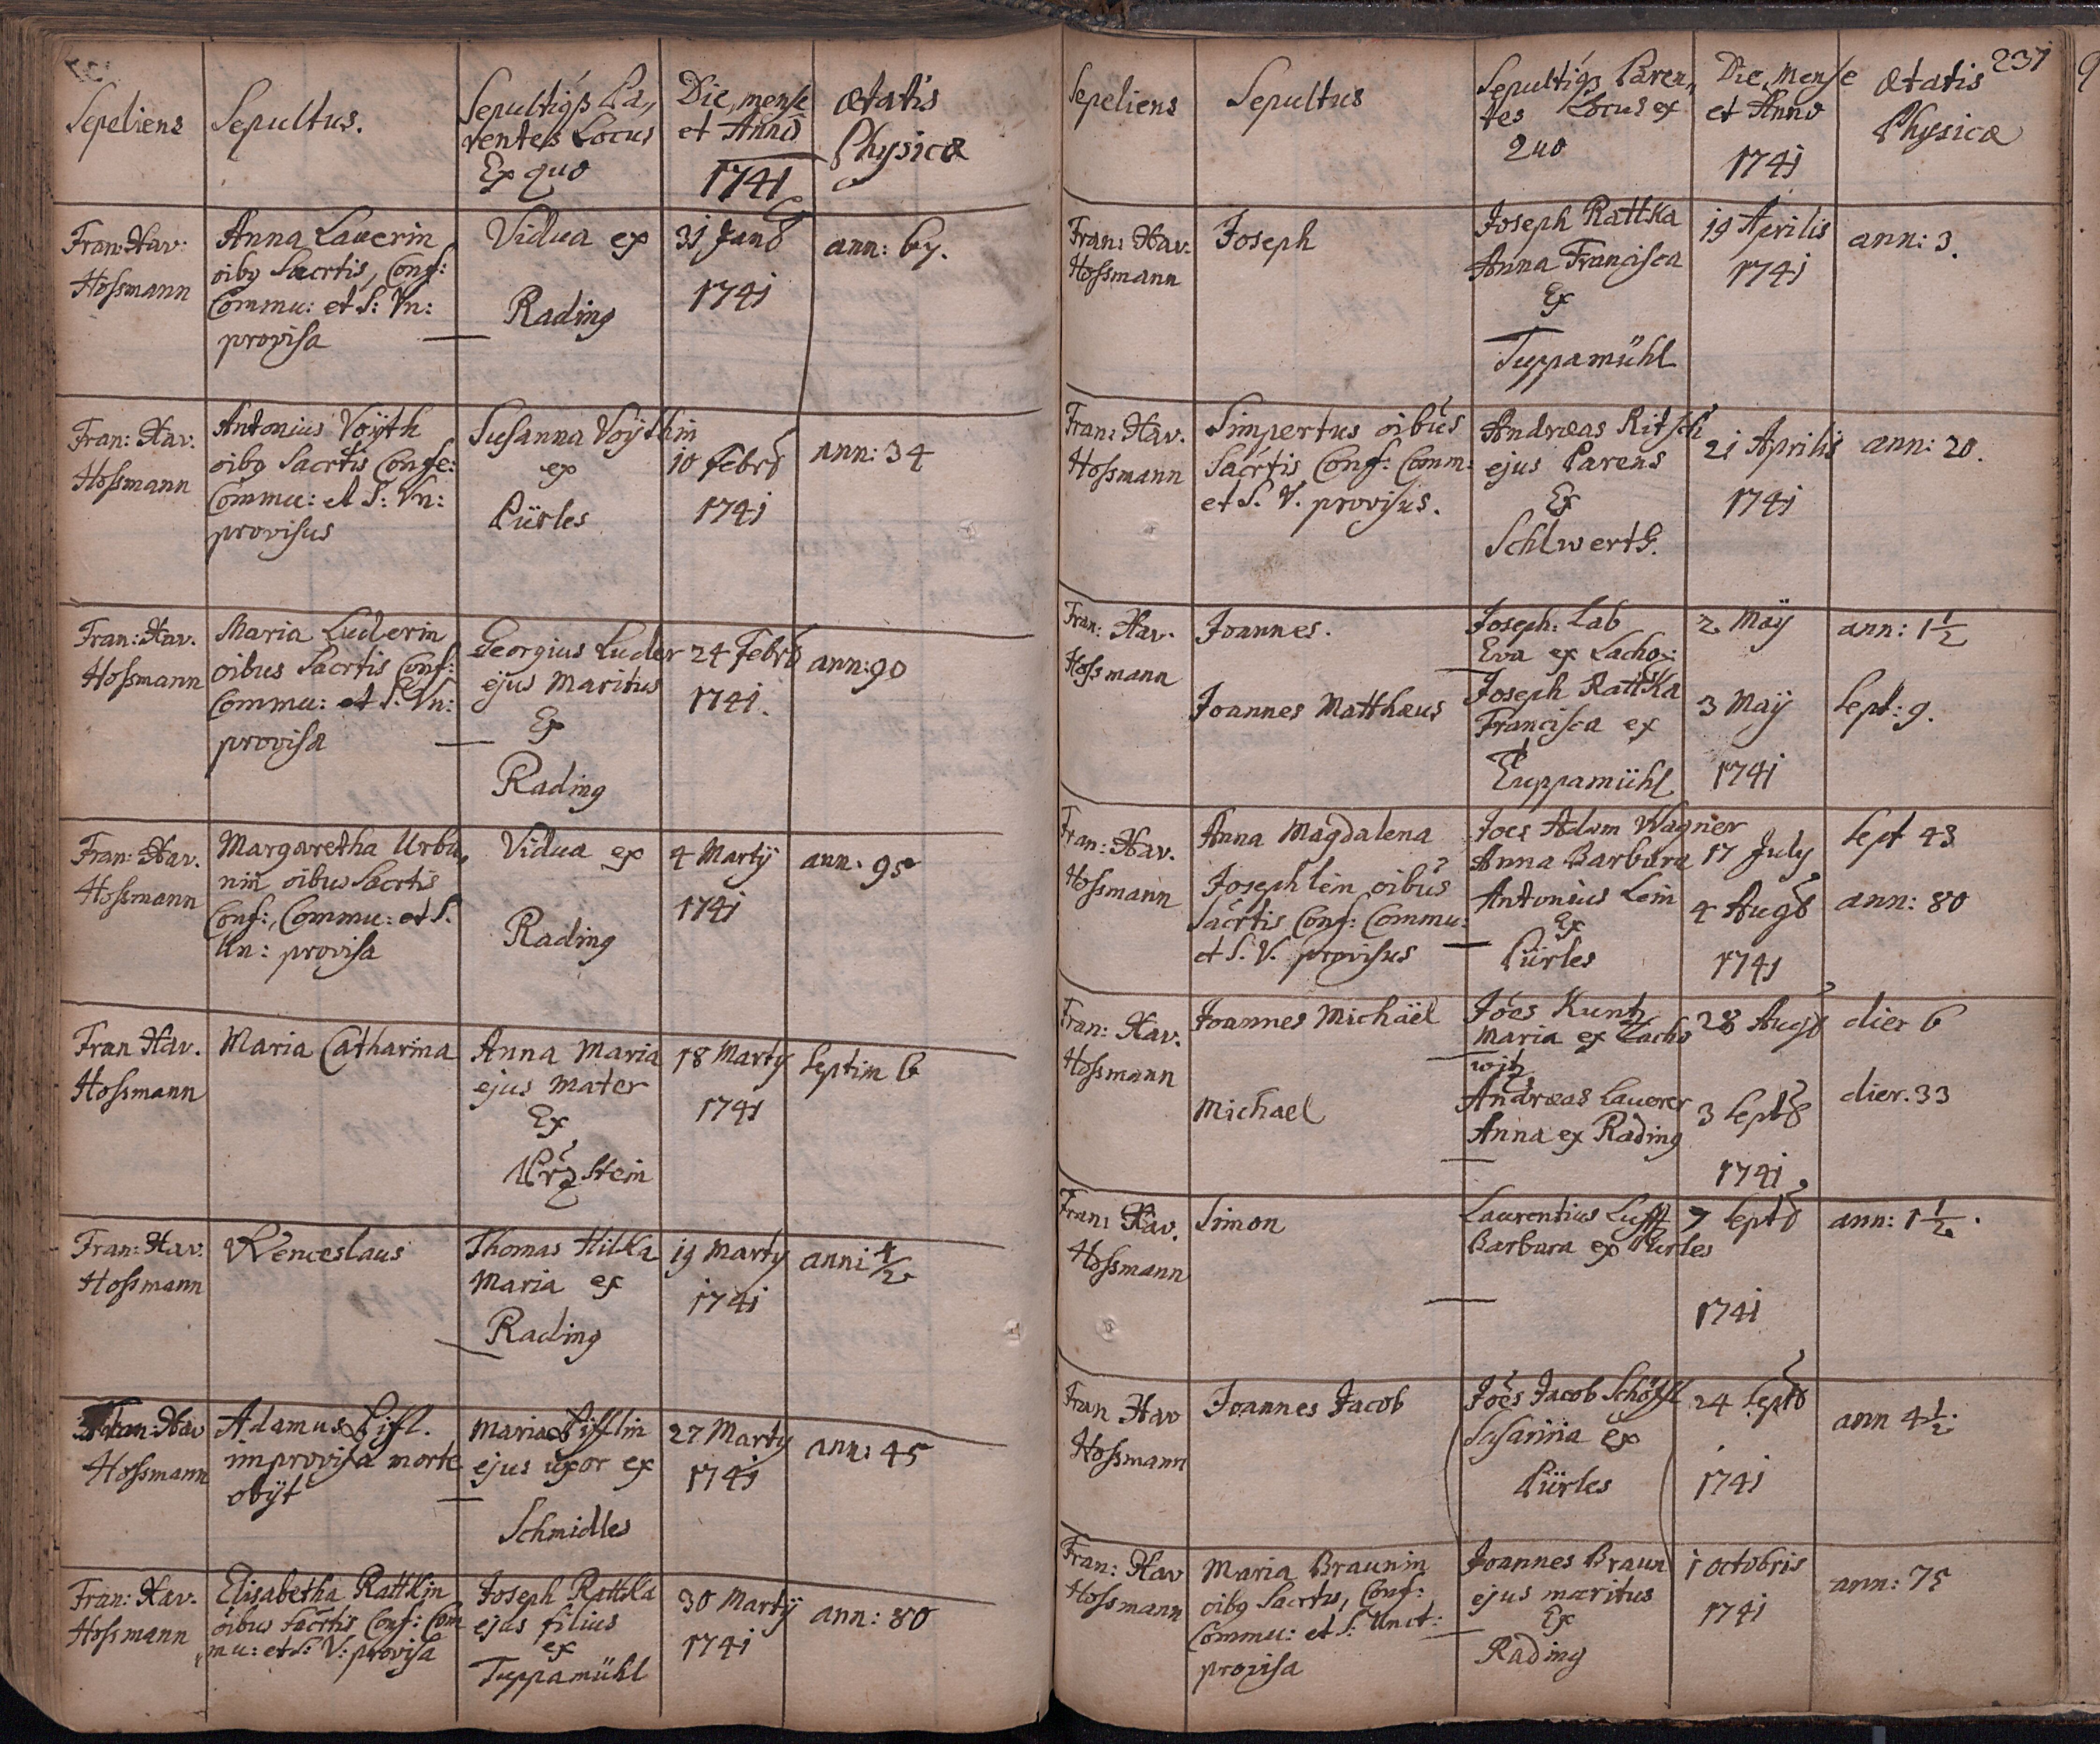 Sepeliens
Sepultus.
Sepultiqs Pa,
rentes Locus
Ex quo
Die, mense
et Anno
1741
Ætatis
Physicæ
Fran: Xav:
Hossmann
Anna Lauerin
oibq Sacrtis, Conf:
Commu: et S: Vn:
provisa
Vidua ex
Rading
31 Jan
1741
ann: 67.
Fran: Xav.
Hossmann
Antonius Voÿth
oibq Sacrtis Confe:
Commu: et S: Vn:
provisus
Susanna Voÿthin
ex
Pürles
10 Febr
1741
ann: 34
Fran: Xav.
Hossmann
Maria Luderin
oibus Sacrtis Conf:
Commu: et S: Vn:
provisa
Georgius Luder
ejus Maritus
Ex
Rading
24 Febr
1741.
ann: 90
Fran: Xav.
Hossmann
Margaretha Urba,
nin oibus Sacrtis
Conf:, Commu: et S.
Un: provisa
Vidua ex
Rading
4 Martÿ
1741
ann: 95
Fran Xav.
Hossmann
Maria Catharina
Anna Maria
ejus Mater
Ex
stein
18 Marty
1741
Septim 6
Fran: Xav:
Hossmann
Wenceslaus
Thomas Hilka
Maria ex
Rading
19 Marty
1741
anni 1/2
Fran: Xav
Hossmann
Adamus Pifl.
improvisa morte
obÿt
Maria Pifflin
ejus uxor ex
Schmidles
27 Marty
1741
ann: 45
Fran: Xav.
Hossmann
Elisabetha Rattkin
oibus Sacrtis Conf: Com
mu: et S: V: provisa
Joseph Rattka
ejus filius
ex
Tuppamühl
30 Martÿ
1741
ann: 80
231
Sepeliens
Sepultus
Sepultiqs Paren,
tes Locus ex
Quo
Die, Mense
et Anno
1741
Ætatis
Physicæ
Fran: Xav.
Hossmann
Joseph
Joseph Rattka
Anna Francisca
Ex
Tuppamühl
19 Aprilis
1741
ann: 3.
Fran: Xav.
Hossmann
Simpertus oibus
Sacrtis Conf: Comm:
et S. V. provisus.
Andræas Ritsch
ejus Parens
Ex
Schlwerth.
21 Aprilis
1741
ann: 20.
Fran: Xav.
Hossmann
Joannes.
Joseph: Lab
Eva ex Lacho:
2 Maÿ
ann: 1 1/2
Joannes Matthæus
Joseph Rattka
Francisca ex
Tuppamühl
3 Maÿ
1741
Sept: 9.
Fran: Xav.
Hossmann
Anna Magdalena
Joes Adam Wagner
Anna Barbara
17 July
Sept 43
Joseph lein oibus
Sacrtis Conf: Commu:
et S. V. provisus
Antonius Lein
Ex
Pürles
4 Aug
1741
ann: 80
Fran: Xav.
Hossmann
Joannes Michäel
Joes Kuntz
Maria ex Lacho
witz
28 Aug
dier 6
Michael
Andræas Lauerer
Anna ex Rading
3 Sept
1741
dier. 33
Fran: Xav.
Hossmann
Simon
Laurentius Lufft
Barbara ex Pürles
7 Sept
1741
ann: 1 1/2.
Fran Xav
Hossmann
Joannes Jacob
Joes Jacob Schöffl
Susanna ex
Pürles
24 Sept
1741
ann 4 1/2
Fran: Xav
Hossmann
Maria Braunin
oibq Sacrtis, Conf:
Commu: et S: Unct:
provisa
Joannes Braun
ejus maritus
Ex
Rading
1 octobris
1741
ann: 75